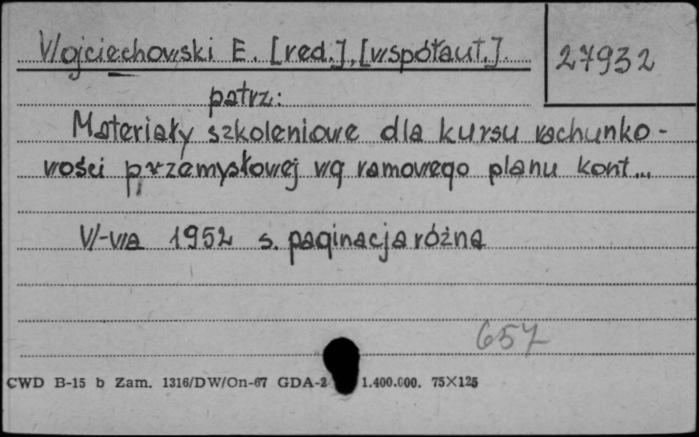 Wojciechowski E. [red.], [współaut.].
27932
patrz:
Materiały szkoleniowe dla kursu rachunko-
wości przemysłowej wg ramowego planu kont...
W-wa 1952 s. paginacja różna
657
CWD B-15 b Zam. 1316/DW/On-67 GDA-2 1.400.000. 75×125